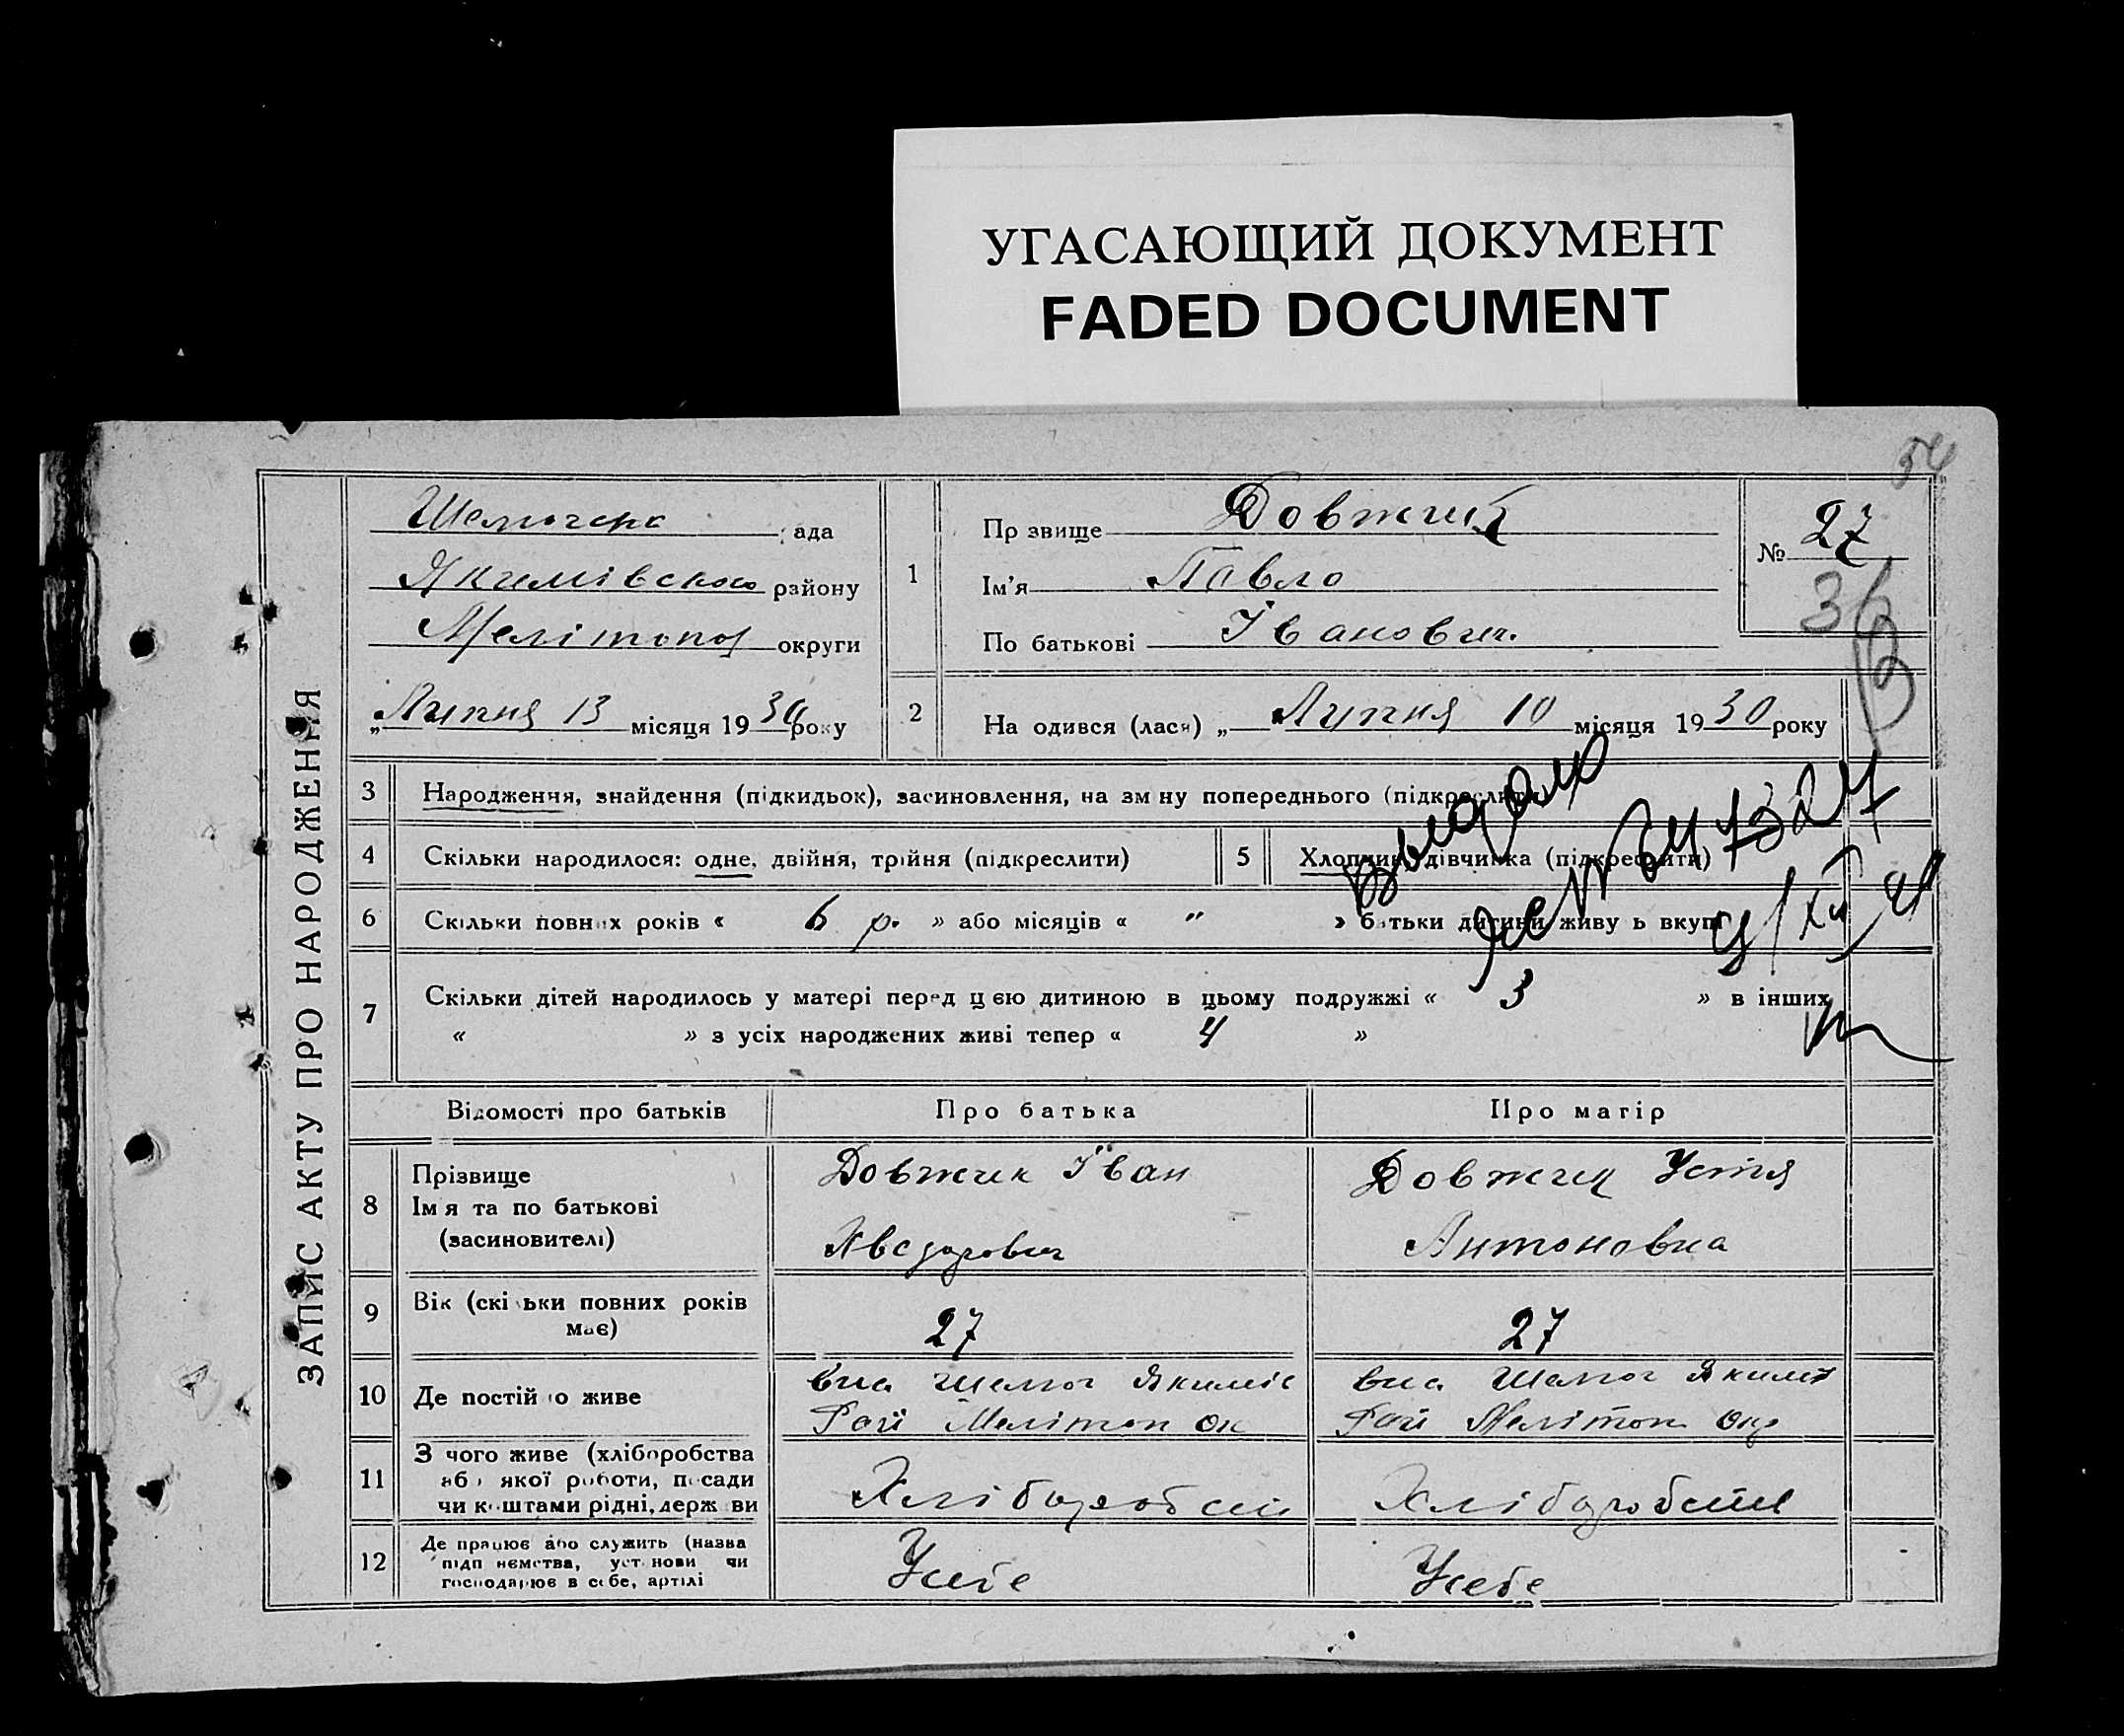 УГАСАЮЩИЙ ДОКУМЕНТ
FADED DOCUMENT
ЗАПИС АКТУ ПРО НАРОДЖЕННЯ
ада
Якимівского району
Меліто округи
„Липня 13 місяця 1930 року
1
Пр звище Довжик
Ім'я Павло
По батькові Іванович.
№ 27
36
2
На одився (лася) „ Липня 10 місяця 1930 року
3 Народження, знайдення (підкидьок), засиновлення, на зм ну попереднього (підкреслити)
4 Скільки народилося: одне, двійня, трійня (підкреслити)
5 Хлопчик, дівчинка (підкреслити)
6 Скільки повних років « 6 р. » або місяців « " » батьки дитини живу ь вкупі
7 Скільки дітей народилось у матері перед цею дитиною в цьому подружжі « 3 » в інших
« » з усіх народжених живі тепер « 4 »
Відомості про батьків Про батька Про матір
8 Прізвище
Імя та по батькові
(засиновителі)
Довжик Іван
Довжик Устя
Антоновна
9 Вік (скі ьки повних років
має)
27
27
10 Де постій о живе
Якиміс
Рай Мелітоп Ок
Якимі
Рай Мелітоп Окр
11 З чого живе (хліборобства
або якої роботи, посади
чи коштами рідні, держ ви
Хлібороб
Хліборобств
12 Де працює або служить (назва
підп ємства, уст нови чи
господарює в себе, артілі
Усебе
Усебе